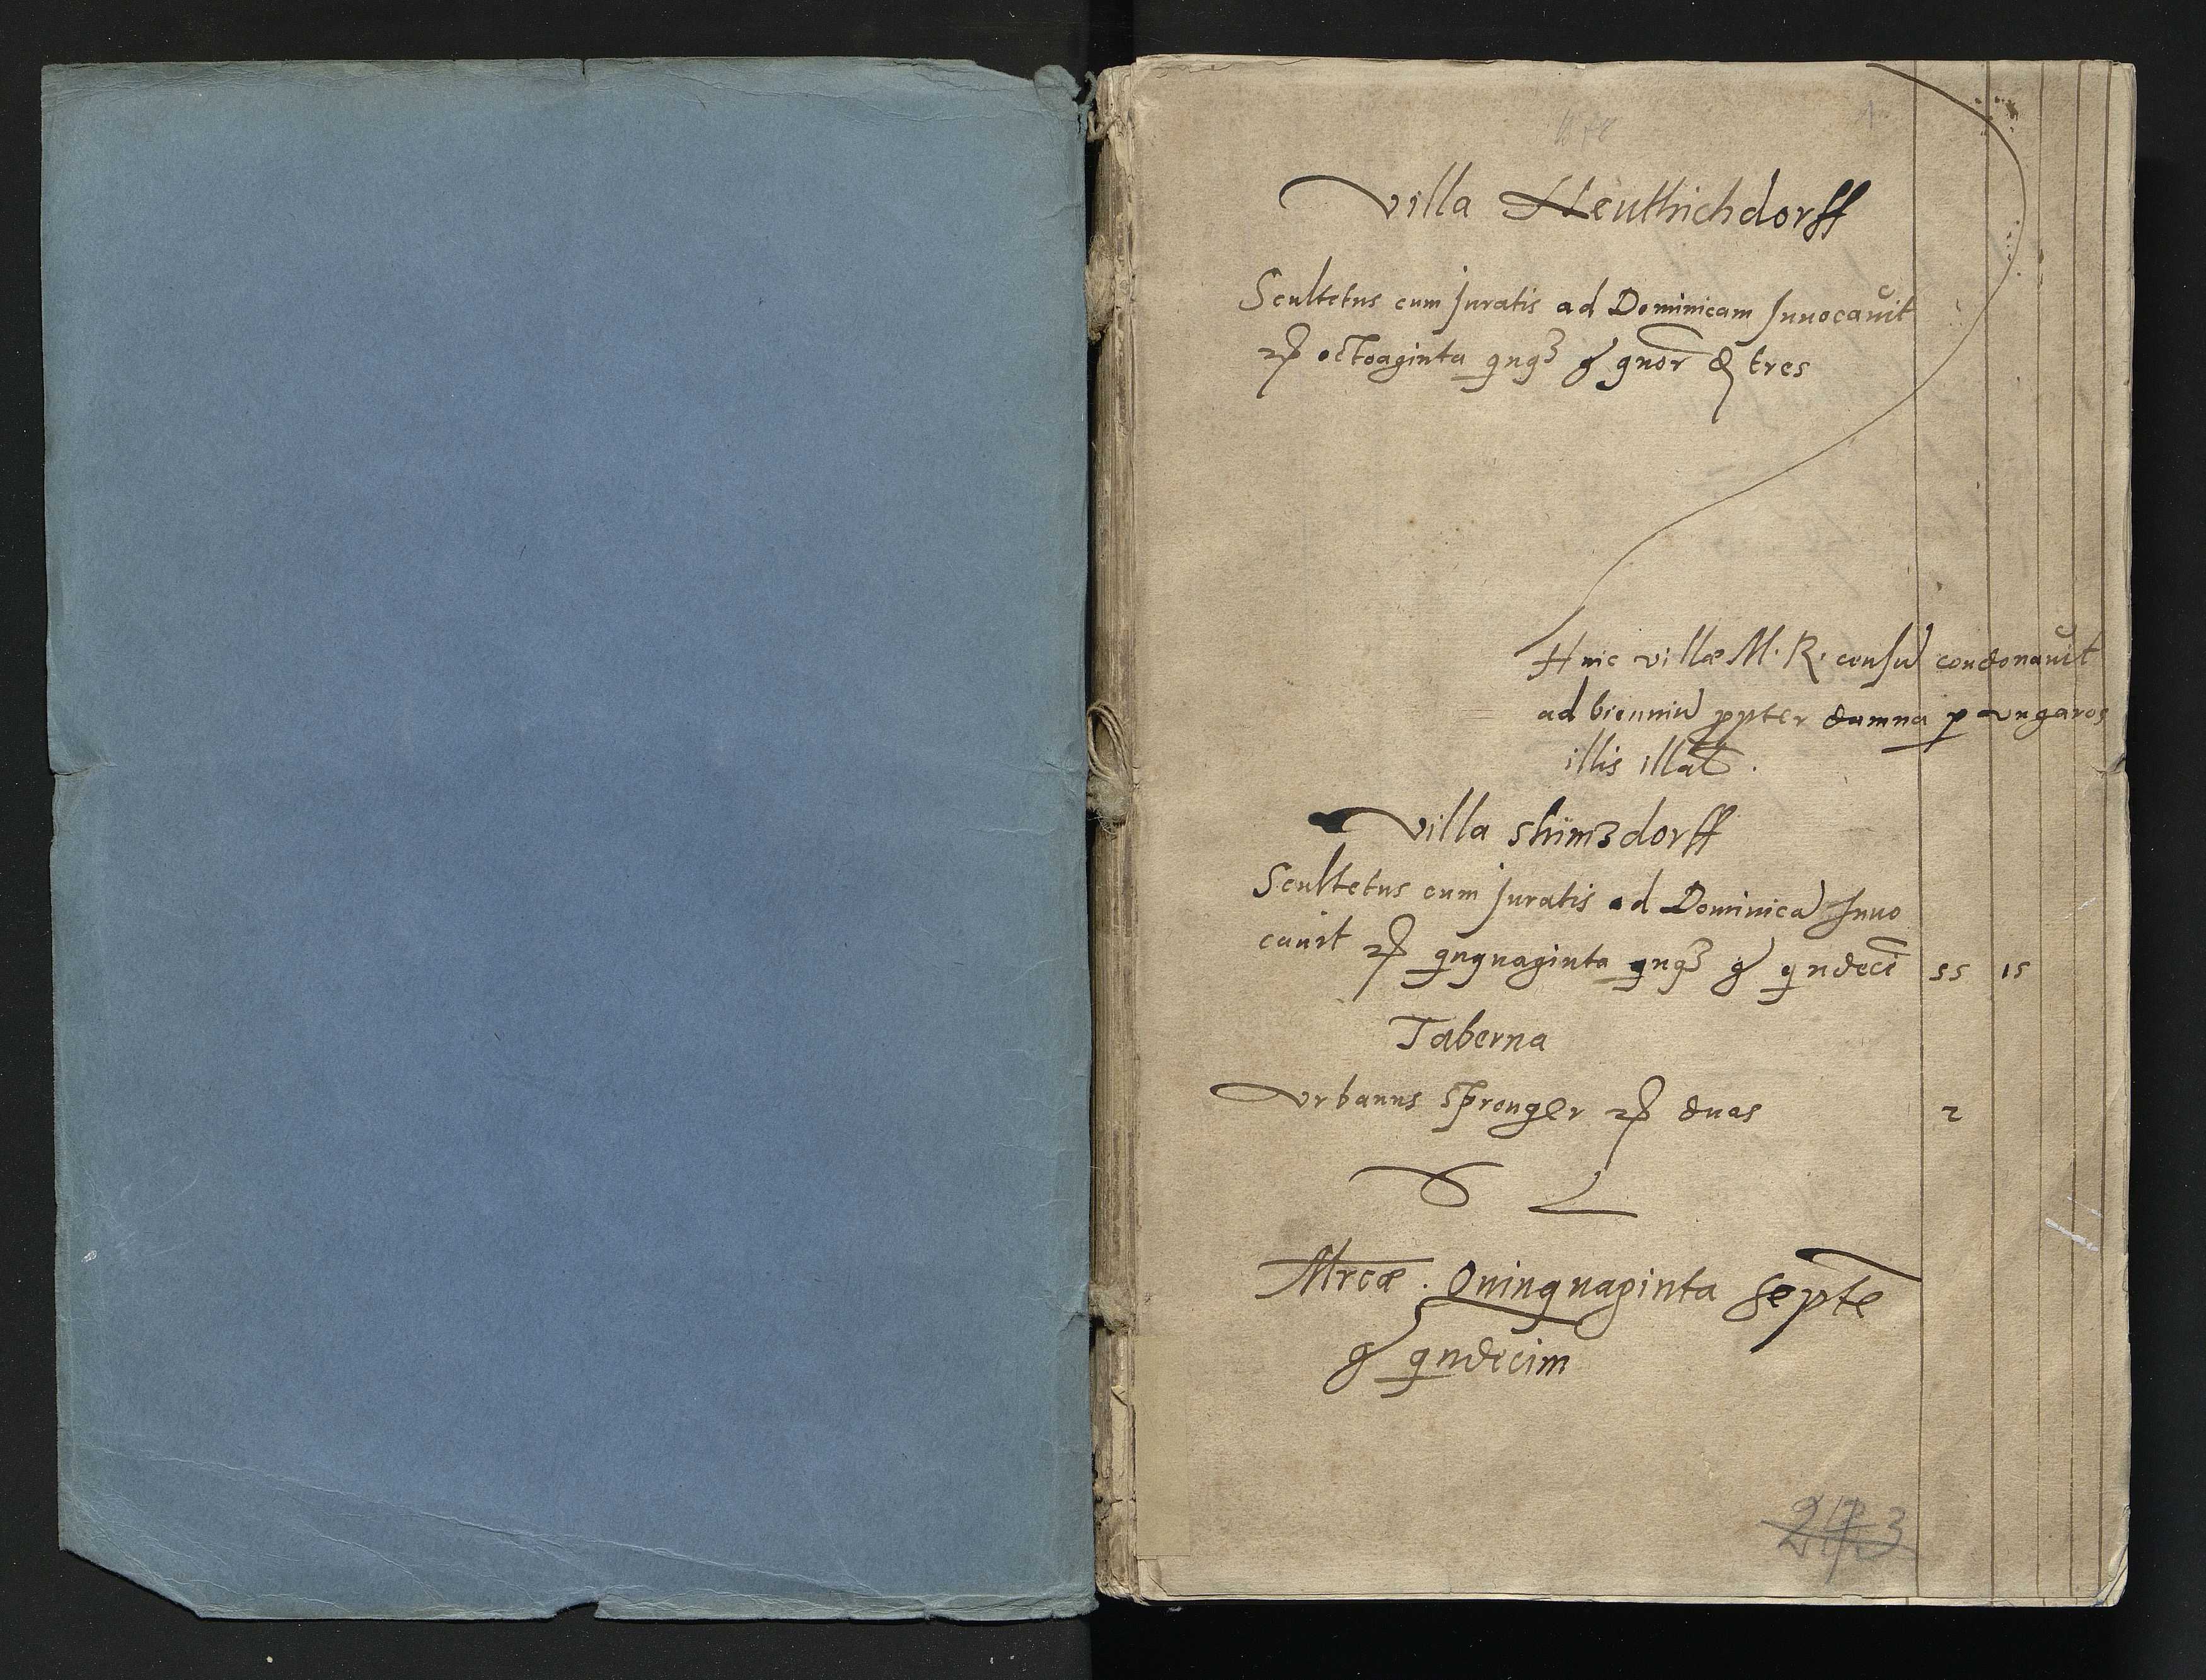 1
villa Neuthichdorff
Scultetus cum Juratis ad Dominicam Inuocauit
octoaginta qnqȝ g qnor & tres
Huic villæ M. R. consul condonauit
ad bienniū ppter damna p vngaros
illis illat .
villa Shimȝdorff
Scultetus cum Juratis ad Dominicā Inuo
cauit qnquaginta qnqȝ g qndecī 55 15
Taberna
Vrbanus Sprenger duas 2
Mrcæ . Quinquaginta Septē
g qndecim